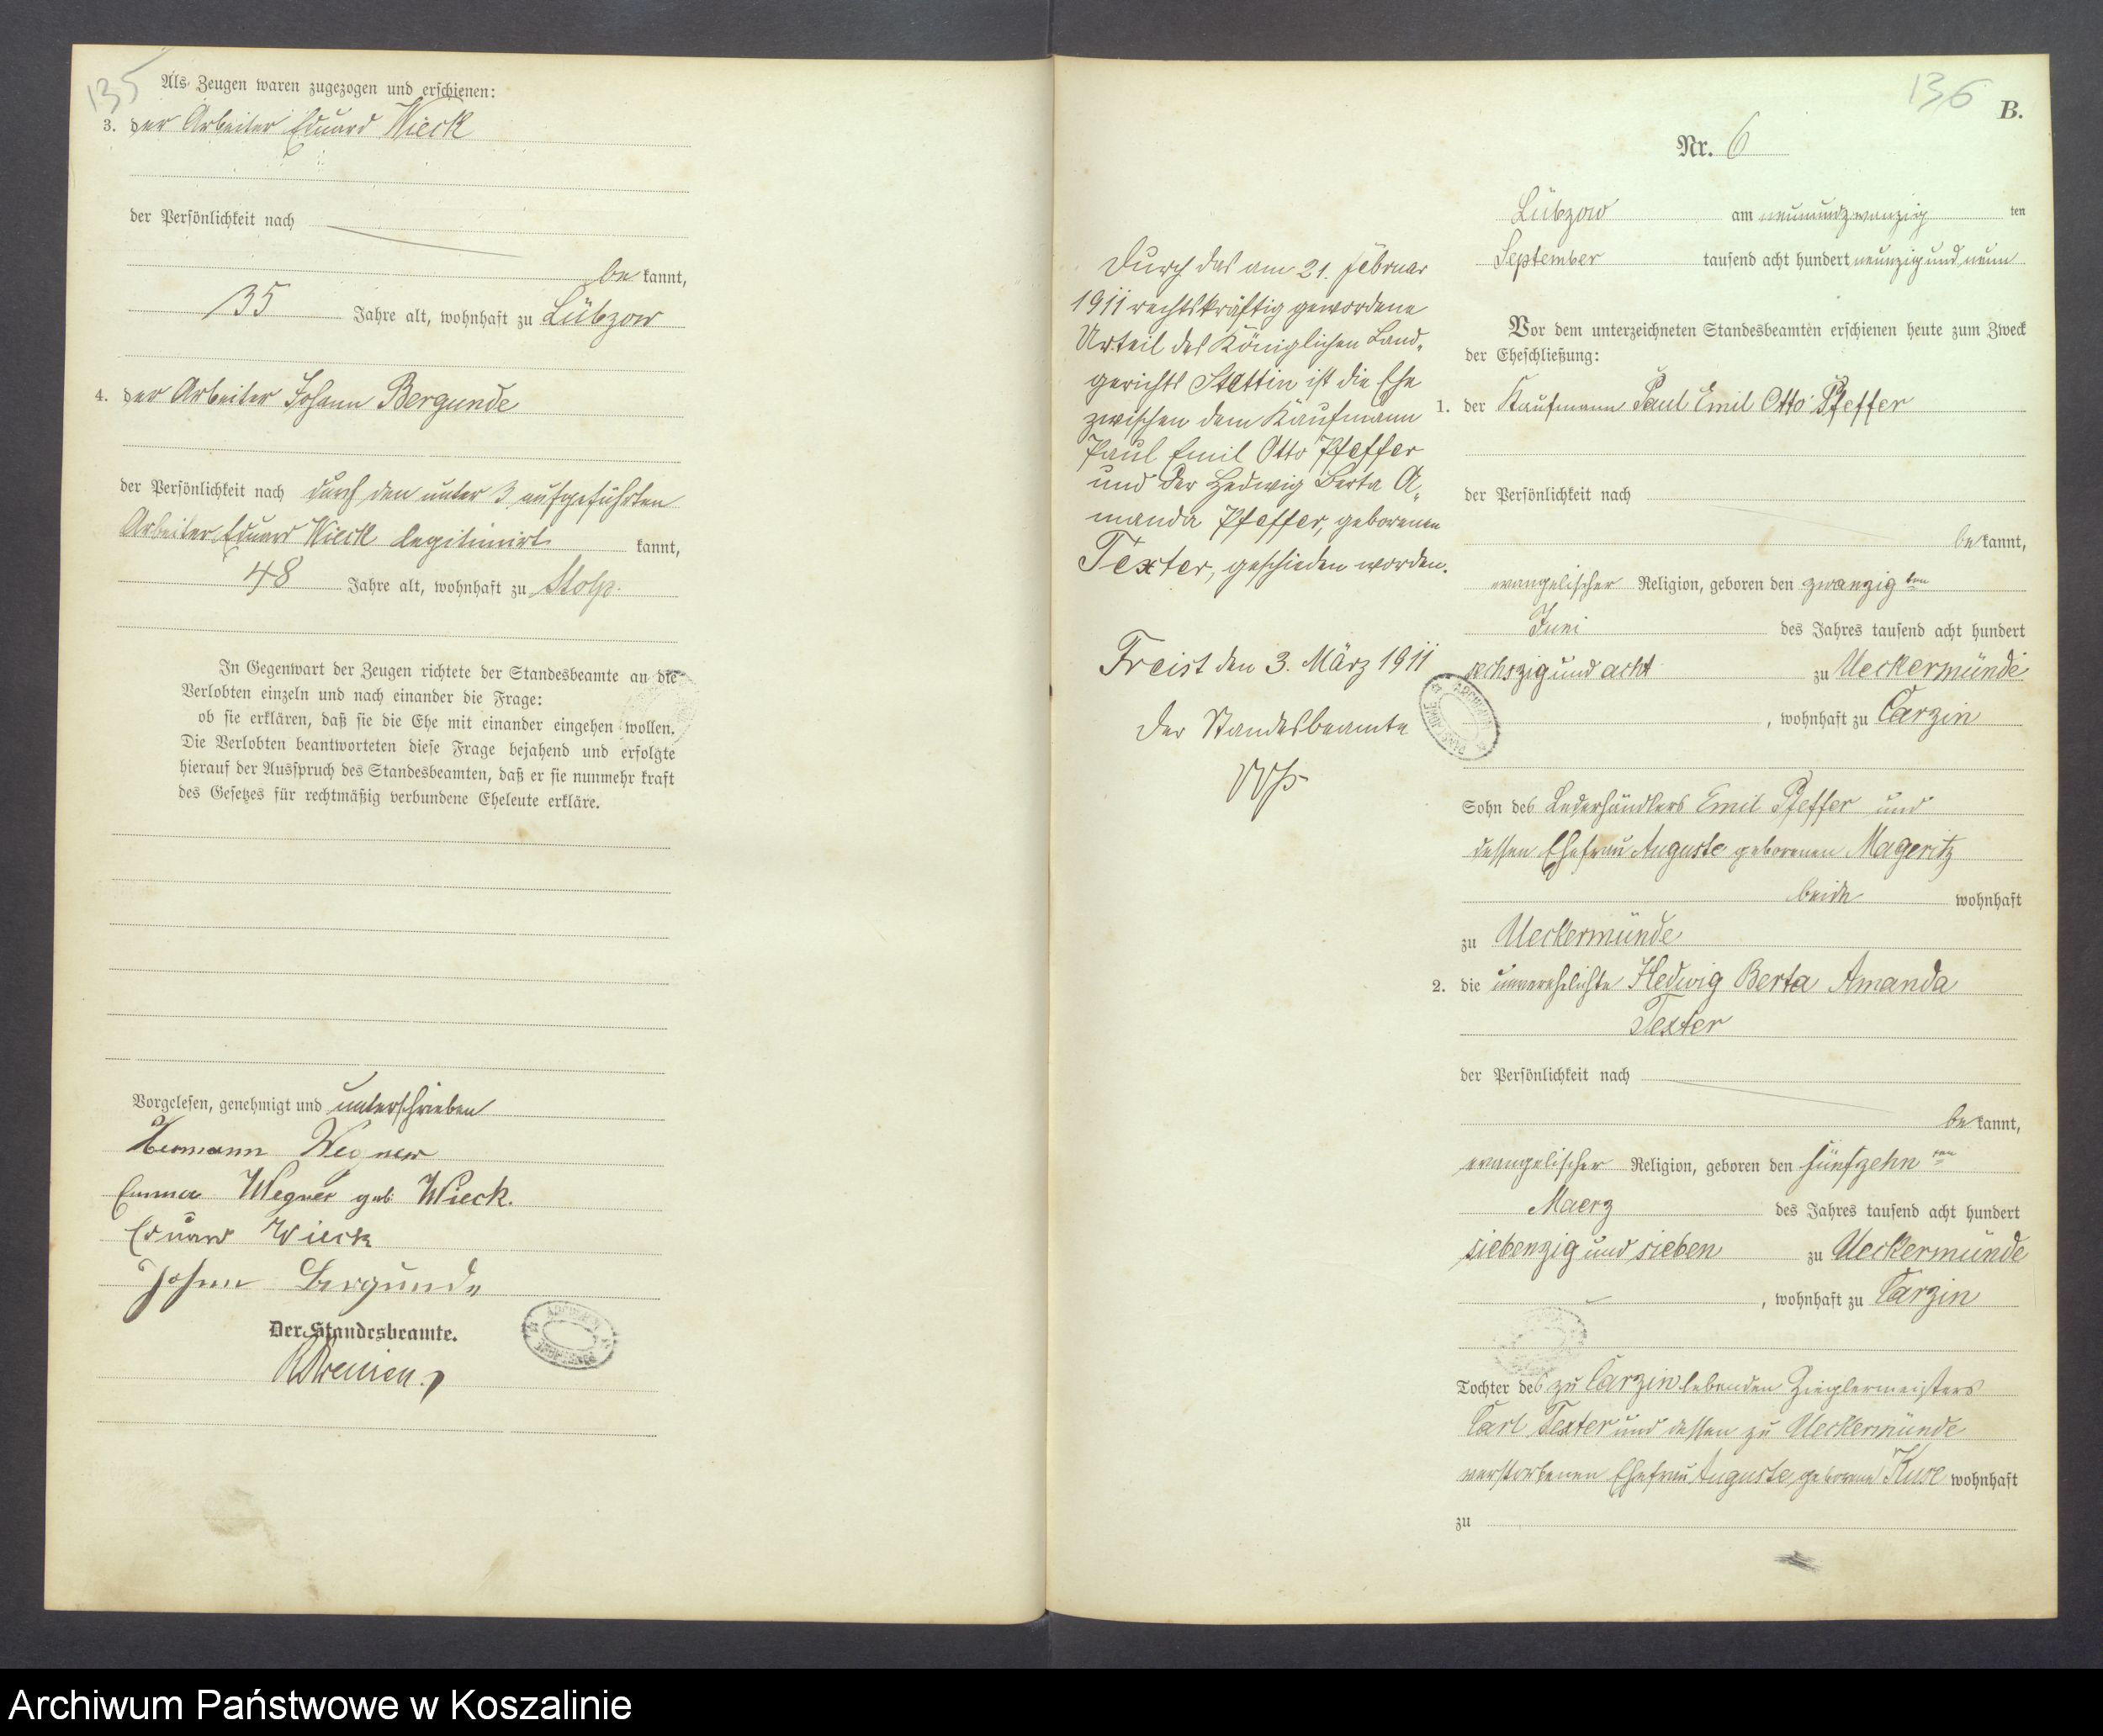 135
Als Zeugen waren zugezogen und erschienen:
3. der Arbeiter Eduard Wieck
der Persönlichkeit nach
be kannt,
35 Jahre alt, wohnhaft zu Lübzow
4. der Arbeiter Johann Bergunde
der Persönlichkeit nach durch den unter 3 aufgeführten
Arbeiter Eduard Wieck legitimirt kannt,
48 Jahre alt, wohnhaft zu Stolp.
In Gegenwart der Zeugen richtete der Standesbeamte an die
Verlobten einzeln und nach einander die Frage:
ob sie erklären, daß sie die Ehe mit einander eingehen wollen.
Die Verlobten beantworteten diese Frage bejahend und erfolgte
hierauf der Ausspruch des Standesbeamten, daß er sie nunmehr kraft
des Gesetzes für rechtmäßig verbundene Eheleute erkläre.
Vorgelesen, genehmigt und unterschrieben
Hermann Wegner
Emma Wegner geb. Wieck.
Eduard Wieck
Johann Bergunde
Der Standesbeamte.
136
B.
Nr. 6
Lübzow am neunundzwanzig ten
September tausend acht hundert neunzig und neun
Vor dem unterzeichneten Standesbeamten erschienen heute zum Zweck
der Eheschließung:
1. der Kaufmann Paul Emil Otto Pfeffer
der Persönlichkeit nach
be kannt,
evangelischer Religion, geboren den zwanzig ten
Juni des Jahres tausend acht hundert
sechszig und acht zu Ueckermünde
, wohnhaft zu Carzin
Sohn des Lederhändlers Emil Pfeffer und
dessen Ehefrau Auguste geborenen Mageritz
beide wohnhaft
zu Ueckermünde
2. die unverehelichte Hedwig Berta Amanda
Texter
der Persönlichkeit nach
be kannt,
evangelischer Religion, geboren den fünfzehn ten
Maerz des Jahres tausend acht hundert
siebenzig und sieben zu Ueckermünde
, wohnhaft zu Carzin
Tochter des zu Carzin lebenden Zieglermeisters
Carl Texter und dessen zu Ueckermünde
verstorbenen Ehefrau Auguste, geborene Kuse wohnhaft
zu
Durch das am 21. Februar
1911 rechtskräftig gewordene
Urteil des Königlichen Land-
gerichts Stettin ist die Ehe
zwischen dem Kaufmann
Paul Emil Otto Pfeffer
und der Hedwig Berta A-
manda Pfeffer, geborenen
Texter, geschieden worden.
Freist den 3. März 1911
Der Standesbeamte
Archiwum Państwowe w Koszalinie